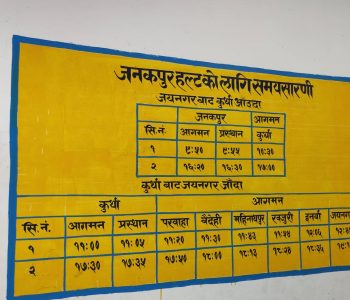 जनकपुर हल्टको लागि समयसारणी
जयनगर बाट कुर्था आँउदा
जनकपुर आगमन
सि.नं. आगमन प्रस्थान कुर्था
१ ९:५० ९:५५ १०:३०
२ १६:२० १६:३० १७:००
कुर्था बाट जयनगर जाँदा
कुर्था आगमन
सि.नं. आगमन प्रस्थान परवाहा बैदेही महिनाथपुर खजुरी इनर्वा
१ ११:०० ११:०५ ११:२० ११:३० ११:४३ ११:५४
२ १७:३० १७:३५ १७:५० १८:०० १८:१३ १८:२४ १८:३५